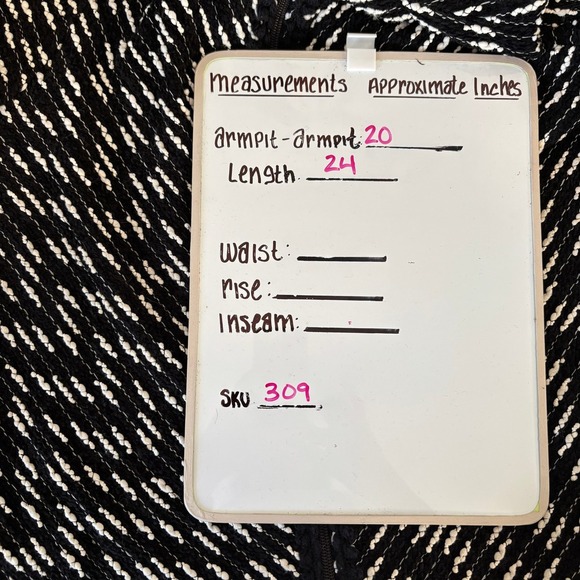 Measurements Approximate Inches
armpit-armpit: 20
Length 24
waist:
rise:
Inseam:
SKU 309